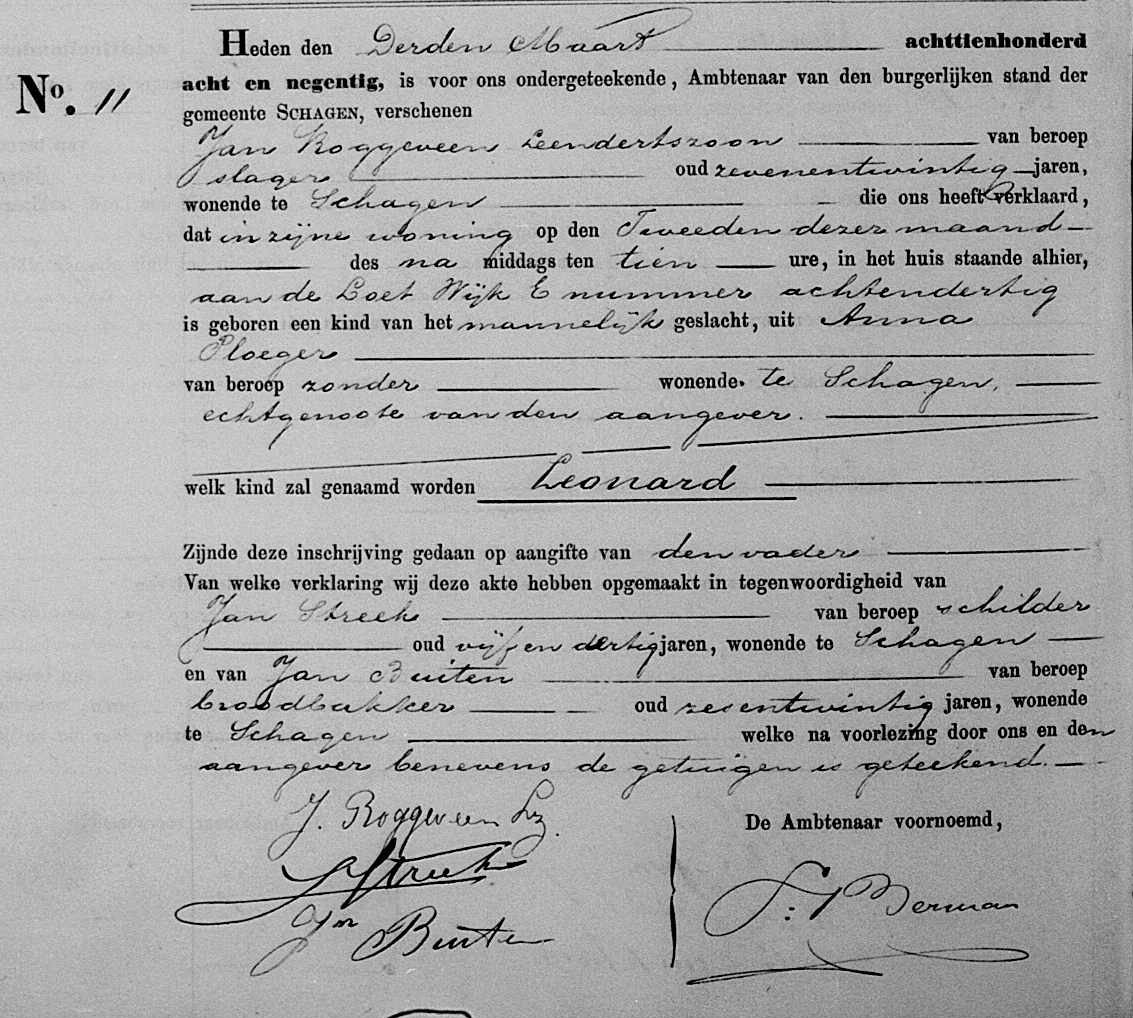 Heden den Derden Maart achttienhonderd
No. 11
acht en negentig, is voor ons ondergeteekende, Ambtenaar van den burgerlijken stand der
gemeente SCHAGEN, verschenen
Jan Roggeveen Leendertszoon van beroep
slager oud zevenentwintig jaren,
wonende te Schagen die ons heeft verklaard,
dat in zijne woning op den Tweeden dezer maand
des na middags ten tien ure, in het huis staande alhier,
aan de Loet Wijk E nummer achtendertig
is geboren een kind van het mannelijk geslacht, uit Anna
Ploeger
van beroep zonder wonende te Schagen,
echtgenoote van den aangever.
welk kind zal genaamd worden Leonard
Zijnde deze inschrijving gedaan op aangifte van den vader
Van welke verklaring wij deze akte hebben opgemaakt in tegenwoordigheid van
Jan Streek van beroep schilder
oud vijf en dertig jaren, wonende te Schagen
en van Jan Buiten van beroep
broodbakker oud zesentwintig jaren, wonende
te Schagen welke na voorlezing door ons en den
aangever benevens de getuigen is geteekend.
J. Roggeveen Lz.
De Ambtenaar voornoemd,
J Streek
S: Berman
Jn Buiten